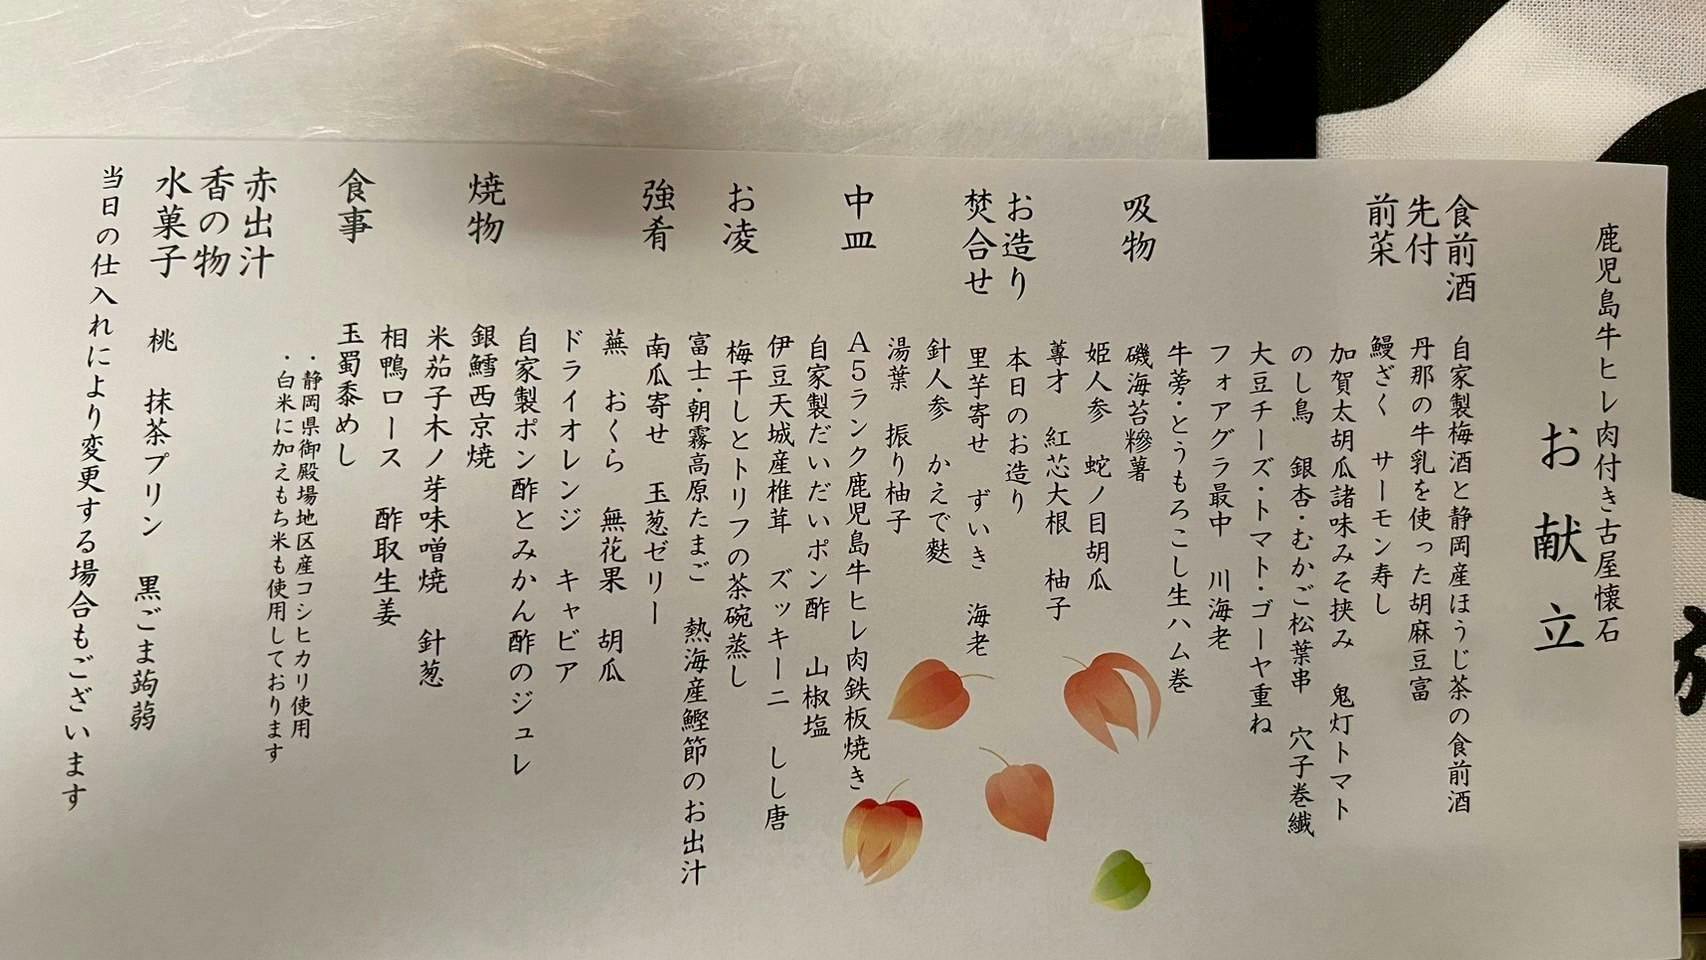 鹿児島牛ヒレ肉付き古屋懐石
お献立
食前酒　自家製梅酒と静岡産ほうじ茶の食前酒
先付　丹那の牛乳を使った胡麻豆富
前菜　鰻ざく　サーモン寿し
加賀太胡瓜諸味みそ挟み　鬼灯トマト
のし鳥　銀杏・むかご松葉串　穴子巻繊
大豆チーズ・トマト・ゴーヤ重ね
フォアグラ最中　川海老
牛蒡・とうもろこし生ハム巻
吸物　磯海苔糝薯
姫人参　蛇ノ目胡瓜
蓴才　紅芯大根　柚子
お造り　本日のお造り
焚合せ　里芋寄せ　ずいき　海老
針人参　かえで麩
湯葉　振り柚子
中皿　A5ランク鹿児島牛ヒレ肉鉄板焼き
自家製だいだいポン酢　山椒塩
伊豆天城産椎茸　ズッキーニ　しし唐
お凌　梅干しとトリフの茶碗蒸し
富士・朝霧高原たまご　熱海産鰹節のお出汁
強肴　南瓜寄せ　玉葱ゼリー
蕪　おくら　無花果　胡瓜
ドライオレンジ　キャビア
自家製ポン酢とみかん酢のジュレ
焼物　銀鱈西京焼
米茄子木ノ芽味噌焼　針葱
相鴨ロース　酢取生姜
食事　玉蜀黍めし
・静岡県御殿場地区産コシヒカリ使用
・白米に加えもち米も使用しております
赤出汁
香の物
水菓子　桃　抹茶プリン　黒ごま蒟蒻
当日の仕入れにより変更する場合もございます